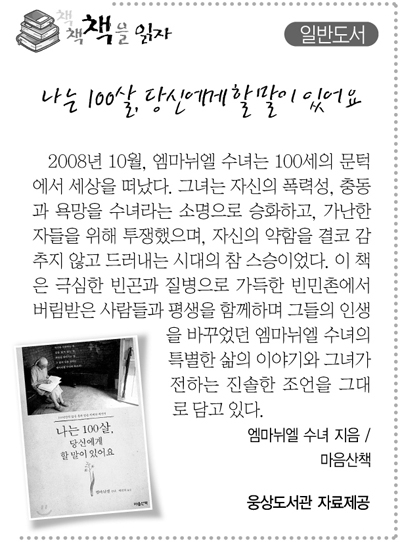 책
책 책을 읽자
일반도서
나는 100살, 당신에게 할 말이 있어요
2008년 10월, 엠마뉘엘 수녀는 100세의 문턱
에서 세상을 떠났다. 그녀는 자신의 폭력성, 충동
과 욕망을 수녀라는 소명으로 승화하고, 가난한
자들을 위해 투쟁했으며, 자신의 약함을 결코 감
추지 않고 드러내는 시대의 참 스승이었다. 이 책
은 극심한 빈곤과 질병으로 가득한 빈민촌에서
버림받은 사람들과 평생을 함께하며 그들의 인생
을 바꾸었던 엠마뉘엘 수녀의
특별한 삶의 이야기와 그녀가
전하는 진솔한 조언을 그대
로 담고 있다.
엠마뉘엘 수녀 지음 /
마음산책
웅상도서관 자료제공
나는 100살,
당신에게
할 말이 있어요